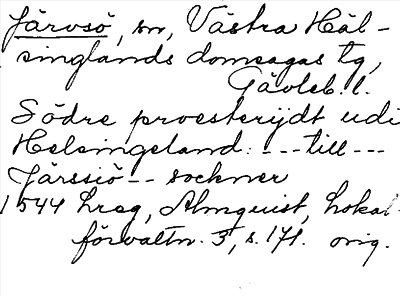 Järvsö, sn, Västra Häl-
singlands domsagas tg,
Gävleb. l.
Södre prosterijdt udi
Helsingeland: --- till ---
Järssiö -- sockner
1544 hreg, Almquist, Lokal-
förvaltn. 3, s. 171. orig.